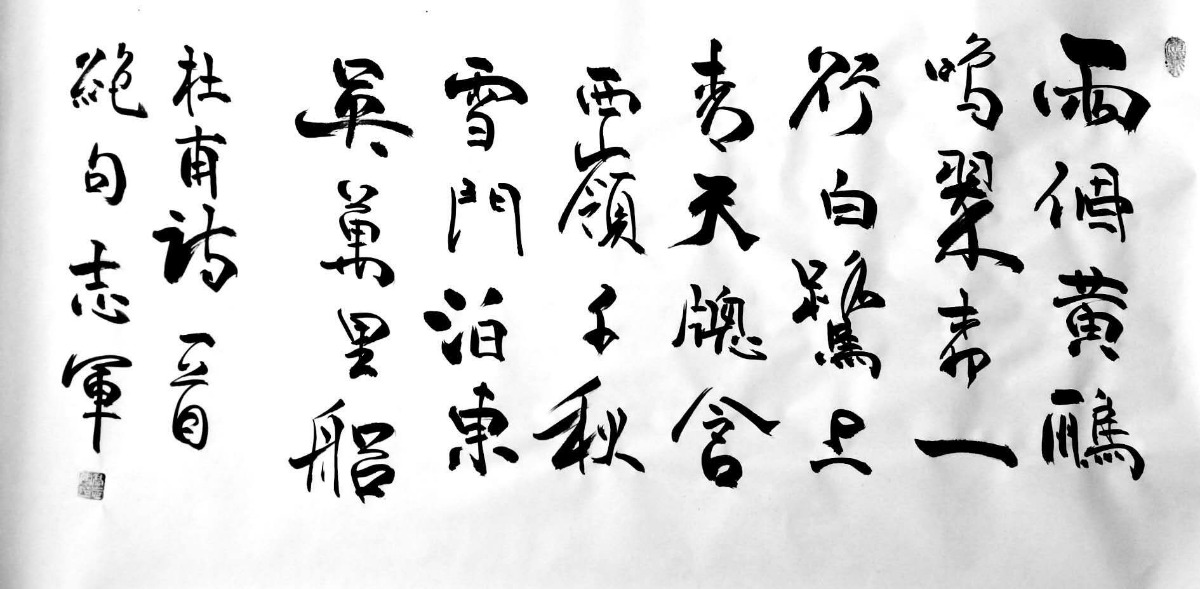 兩個黃鸝
鳴翠柳一
行白鷺上
青天牕含
西嶺千秋
雪門泊東
吳萬里船
杜甫詩一首
絕句志軍